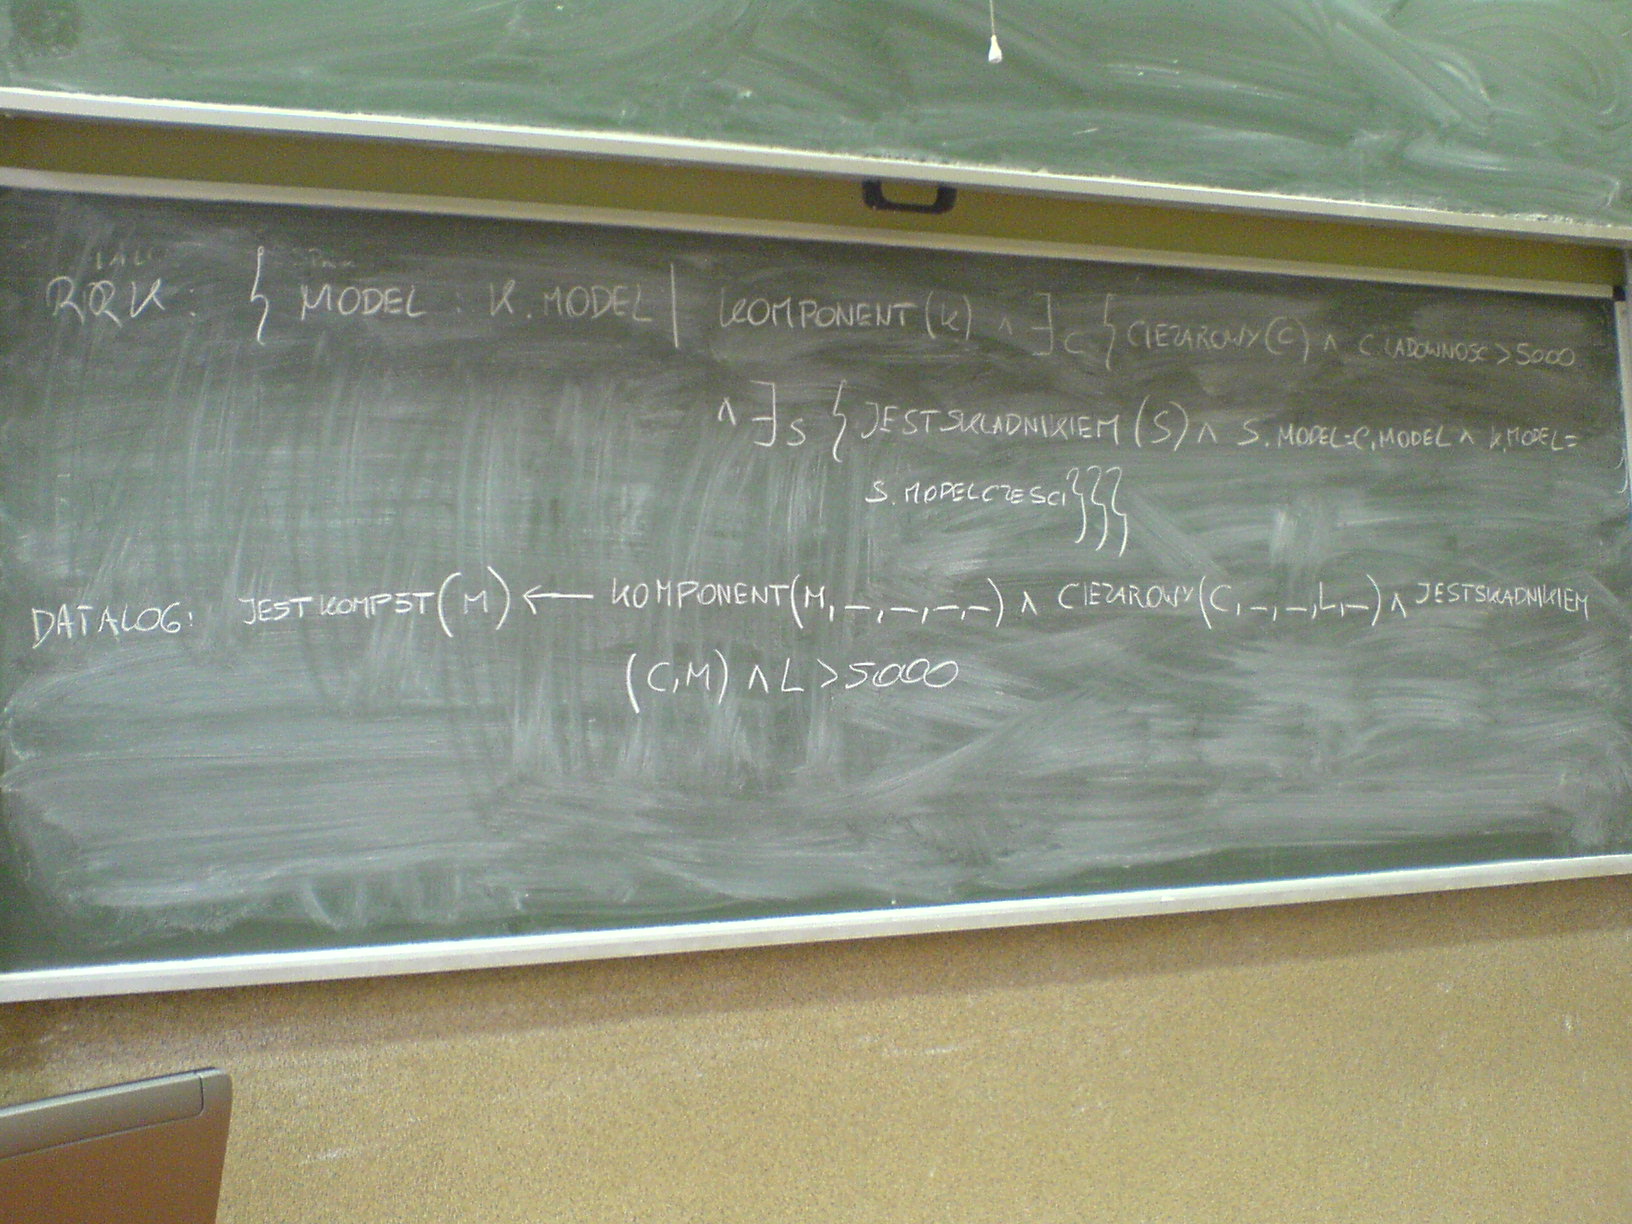 RRK: { MODEL : K.MODEL | KOMPONENT(K) ∧ ∃C { CIEZAROWY(C) ∧ C.LADOWNOSC > 5000
∧ ∃S { JESTSKLADNIKIEM (S) ∧ S.MODEL=C.MODEL ∧ K.MODEL=
S.MODELCZESCI}}}
DATALOG: JESTKOMP5T(M) ← KOMPONENT(M, _, _, _, _) ∧ CIEZAROWY(C, _, _, L, _) ∧ JESTSKLADNIKIEM
(C,M) ∧ L > 5000